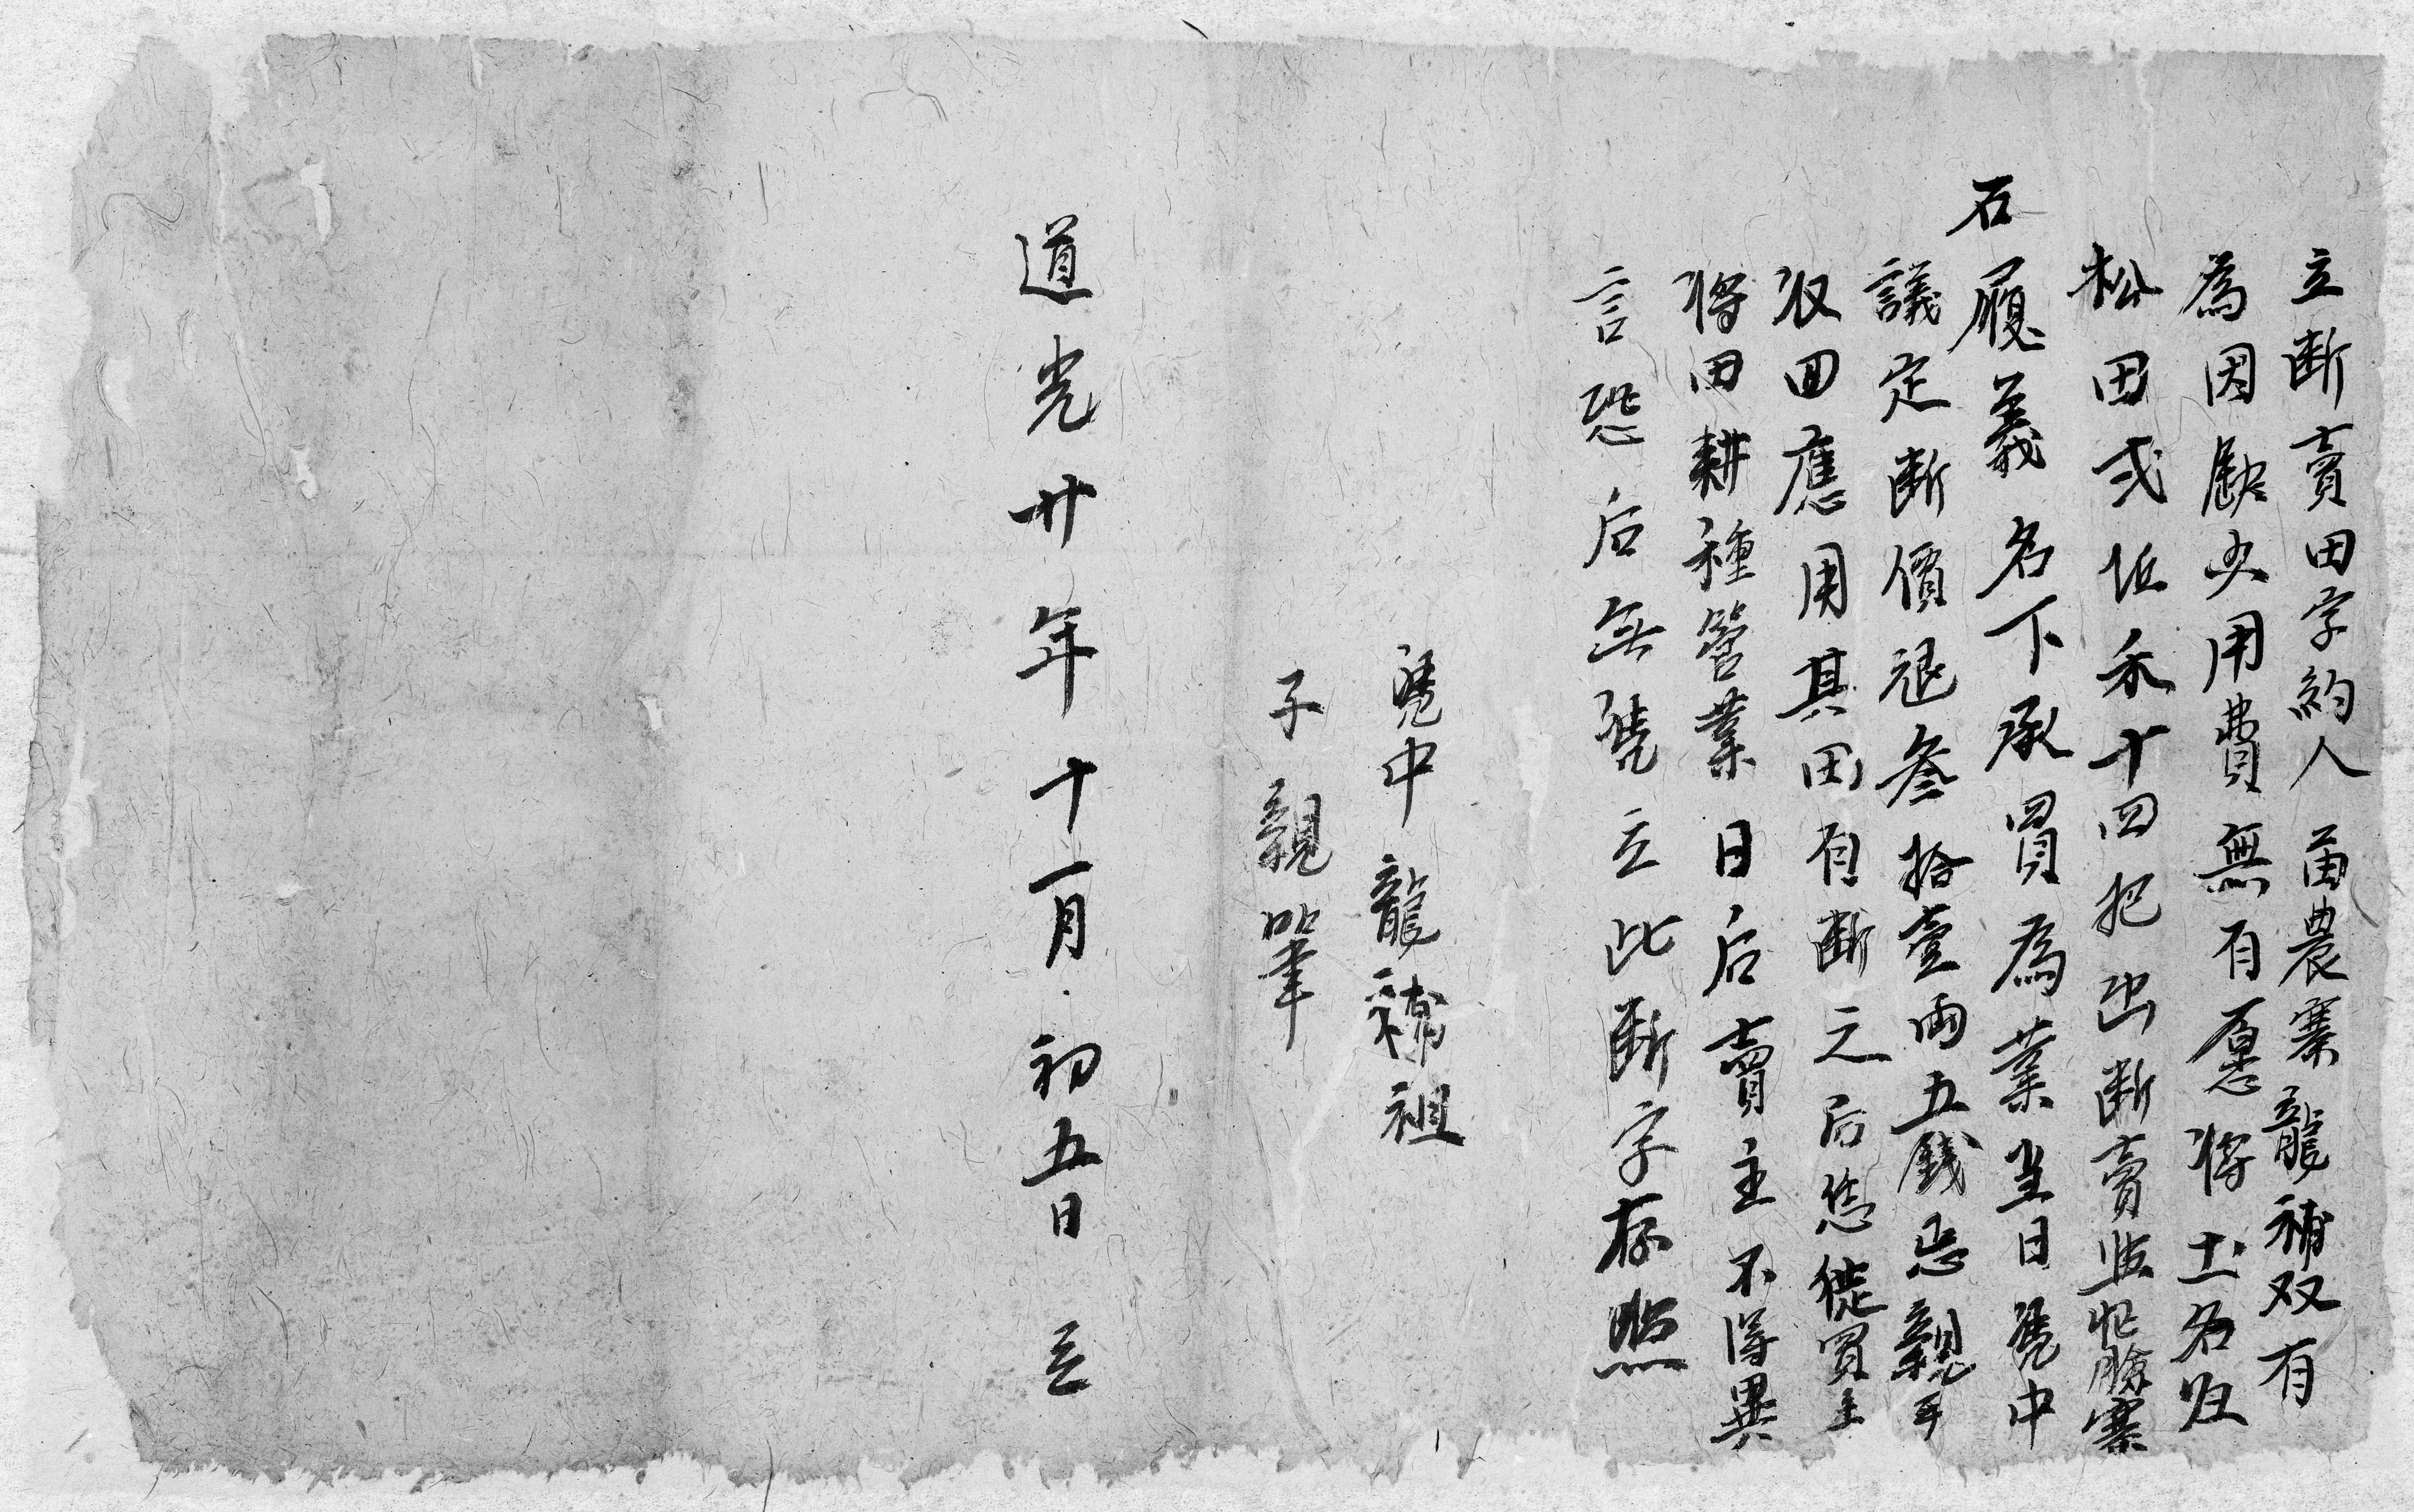 立断賣田字約人苗農寨龍補双有
為因缺少用費無有愿将土名归
松田弍坵禾十四把出断賣與賍臉寨
石履義名下承買為業当日凭中
議定断價銀叁拾壹両五錢忌親手
収回應用其田自断之后恁從買主
将田耕種管業日后賣主不得異
言恐后無凭立此断字存照
凭中龍補祖
子親筆
道光廿年十一月初五日立